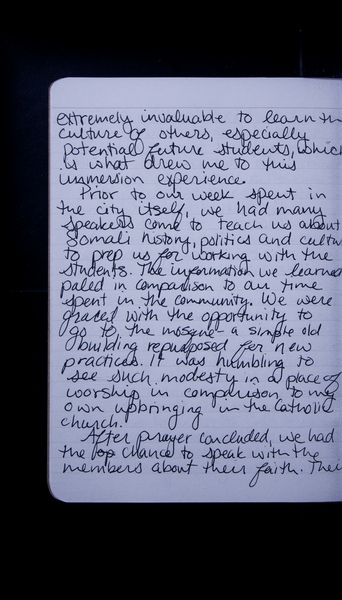 extremely invaluable to learn the
culture of others, especially
potential future students, which
is what drew me to this
immersion experience.
Prior to our week spent in
the city itself, we had many
speakers come to teach us about
Somali history, politics and cultu
to prep us for working with the
students. The information we learned
paled in comparison to our time
spent in the community. We were
graced with the opportunity to
go to the mosque - a simple old
building repurposed for new
practices. It was humbling to
see such modesty in a place of
worship in comparison to my
own upbringing in the Catholic
church.
After prayer concluded, we had
the chance to speak with the
members about their faith. Thei